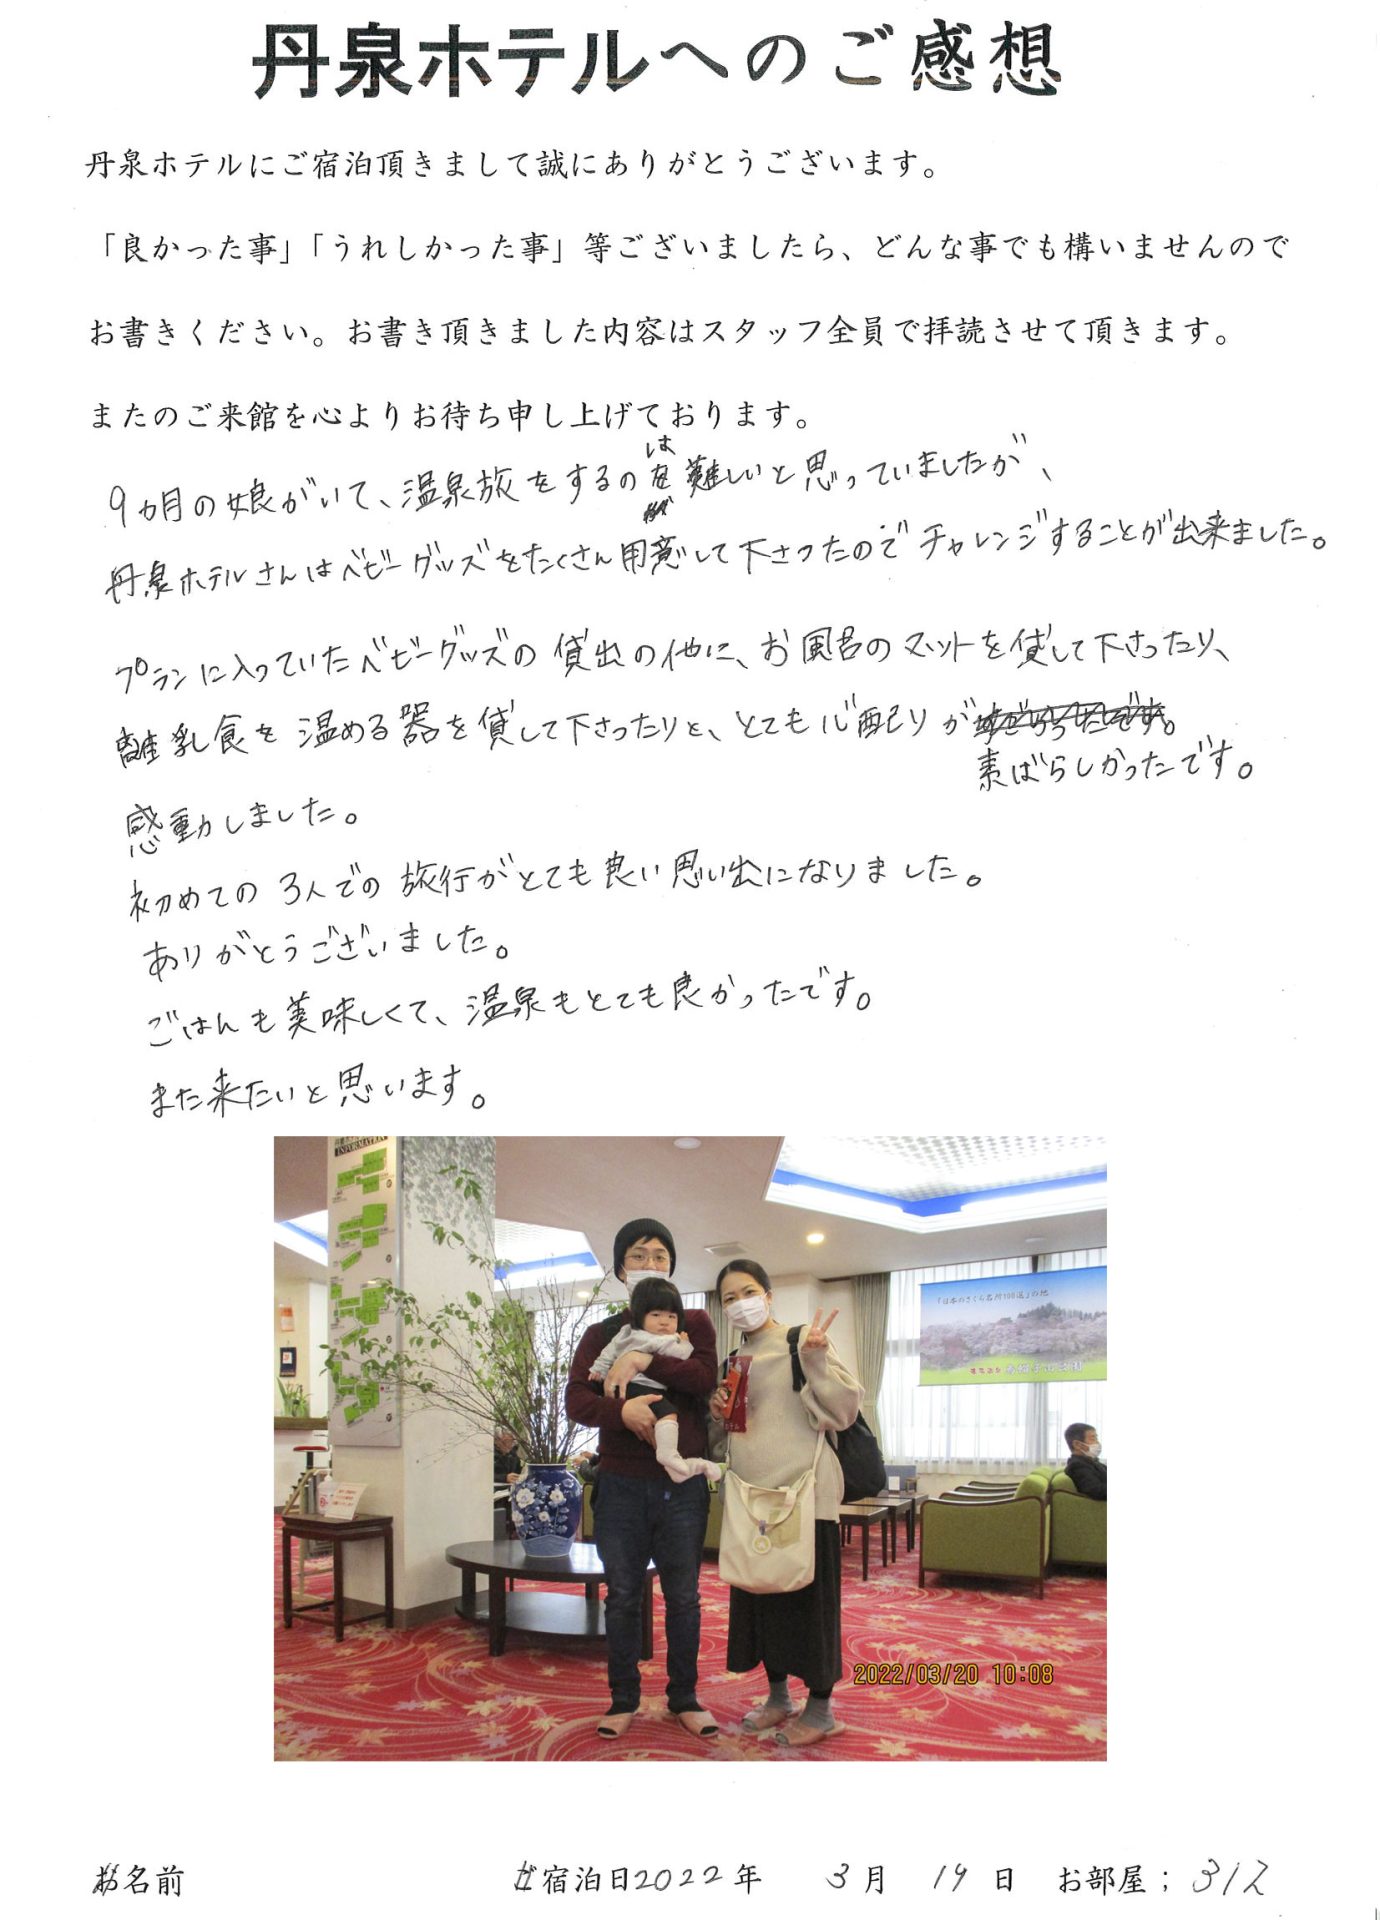 丹泉ホテルへのご感想
丹泉ホテルにご宿泊頂きまして誠にありがとうございます。
「良かった事」「うれしかった事」等ございましたら、どんな事でも構いませんので
お書きください。お書き頂きました内容はスタッフ全員で拝読させて頂きます。
またのご来館を心よりお待ち申し上げております。
9ヵ月の娘がいて、温泉旅をするのは難しいと思っていましたが、
丹泉ホテルさんはベビーグッズをたくさん用意して下さったのでチャレンジすることが出来ました。
プランに入っていたベビーグッズの貸出の他に、お風呂のマットを貸して下さったり、
離乳食を温める器を貸して下さったりと、とても心配りが
素ばらしかったです。
感動しました。
初めての3人での旅行がとても良い思い出になりました。
ありがとうございました。
ごはんも美味しくて、温泉もとても良かったです。
また来たいと思います。
INFORMATION
「日本のさくら名所100選」の地
2022/03/20 10:08
お名前 ご宿泊日2022年 3月 19日 お部屋；312